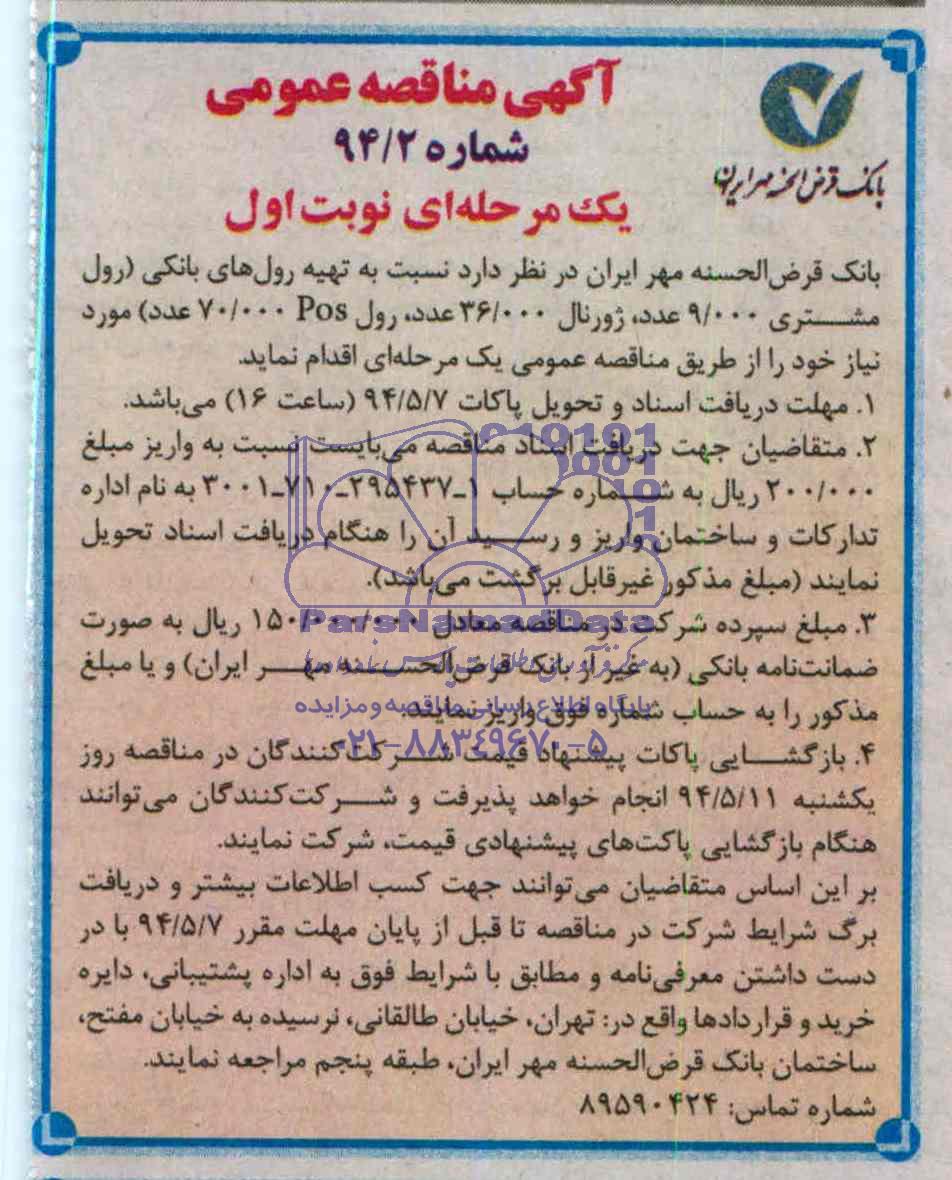 آگهی مناقصه عمومی
شماره ۹۴/۲
یک مرحله‌ای نوبت اول
بانک قرض الحسنه مهر ایران
بانک قرض‌الحسنه مهر ایران در نظر دارد نسبت به تهیه رول‌های بانکی (رول
مشتری ۹/۰۰۰ عدد، ژورنال ۳۶/۰۰۰ عدد، رول Pos ۷۰/۰۰۰ عدد) مورد
نیاز خود را از طریق مناقصه عمومی یک مرحله‌ای اقدام نماید.
۱. مهلت دریافت اسناد و تحویل پاکات ۹۴/۵/۷ (ساعت ۱۶) می‌باشد.
۲. متقاضیان جهت دریافت اسناد مناقصه می‌بایست نسبت به واریز مبلغ
۲۰۰/۰۰۰ ریال به شماره حساب ۱-۲۹۵۴۳۷-۷۱۰-۳۰۰۱ به نام اداره
تدارکات و ساختمان واریز و رسید آن را هنگام دریافت اسناد تحویل
نمایند (مبلغ مذکور غیرقابل برگشت می‌باشد).
۳. مبلغ سپرده شرکت در مناقصه معادل ۱۵۰/۰۰۰/۰۰۰ ریال به صورت
ضمانت‌نامه بانکی (به غیر از بانک قرض‌الحسنه مهر ایران) و یا مبلغ
مذکور را به حساب شماره فوق واریز نمایند.
۴. بازگشایی پاکات پیشنهاد قیمت شرکت‌کنندگان در مناقصه روز
یکشنبه ۹۴/۵/۱۱ انجام خواهد پذیرفت و شرکت‌کنندگان می‌توانند
هنگام بازگشایی پاکت‌های پیشنهادی قیمت، شرکت نمایند.
بر این اساس متقاضیان می‌توانند جهت کسب اطلاعات بیشتر و دریافت
برگ شرایط شرکت در مناقصه تا قبل از پایان مهلت مقرر ۹۴/۵/۷ با در
دست داشتن معرفی‌نامه و مطابق با شرایط فوق به اداره پشتیبانی، دایره
خرید و قراردادها واقع در: تهران، خیابان طالقانی، نرسیده به خیابان مفتح،
ساختمان بانک قرض‌الحسنه مهر ایران، طبقه پنجم مراجعه نمایند.
شماره تماس: ۸۹۵۹۰۴۲۴
ParsNamadData
پایگاه اطلاع رسانی مناقصه و مزایده
۰۲۱-۸۸۳۴۹۶۷۰-۵